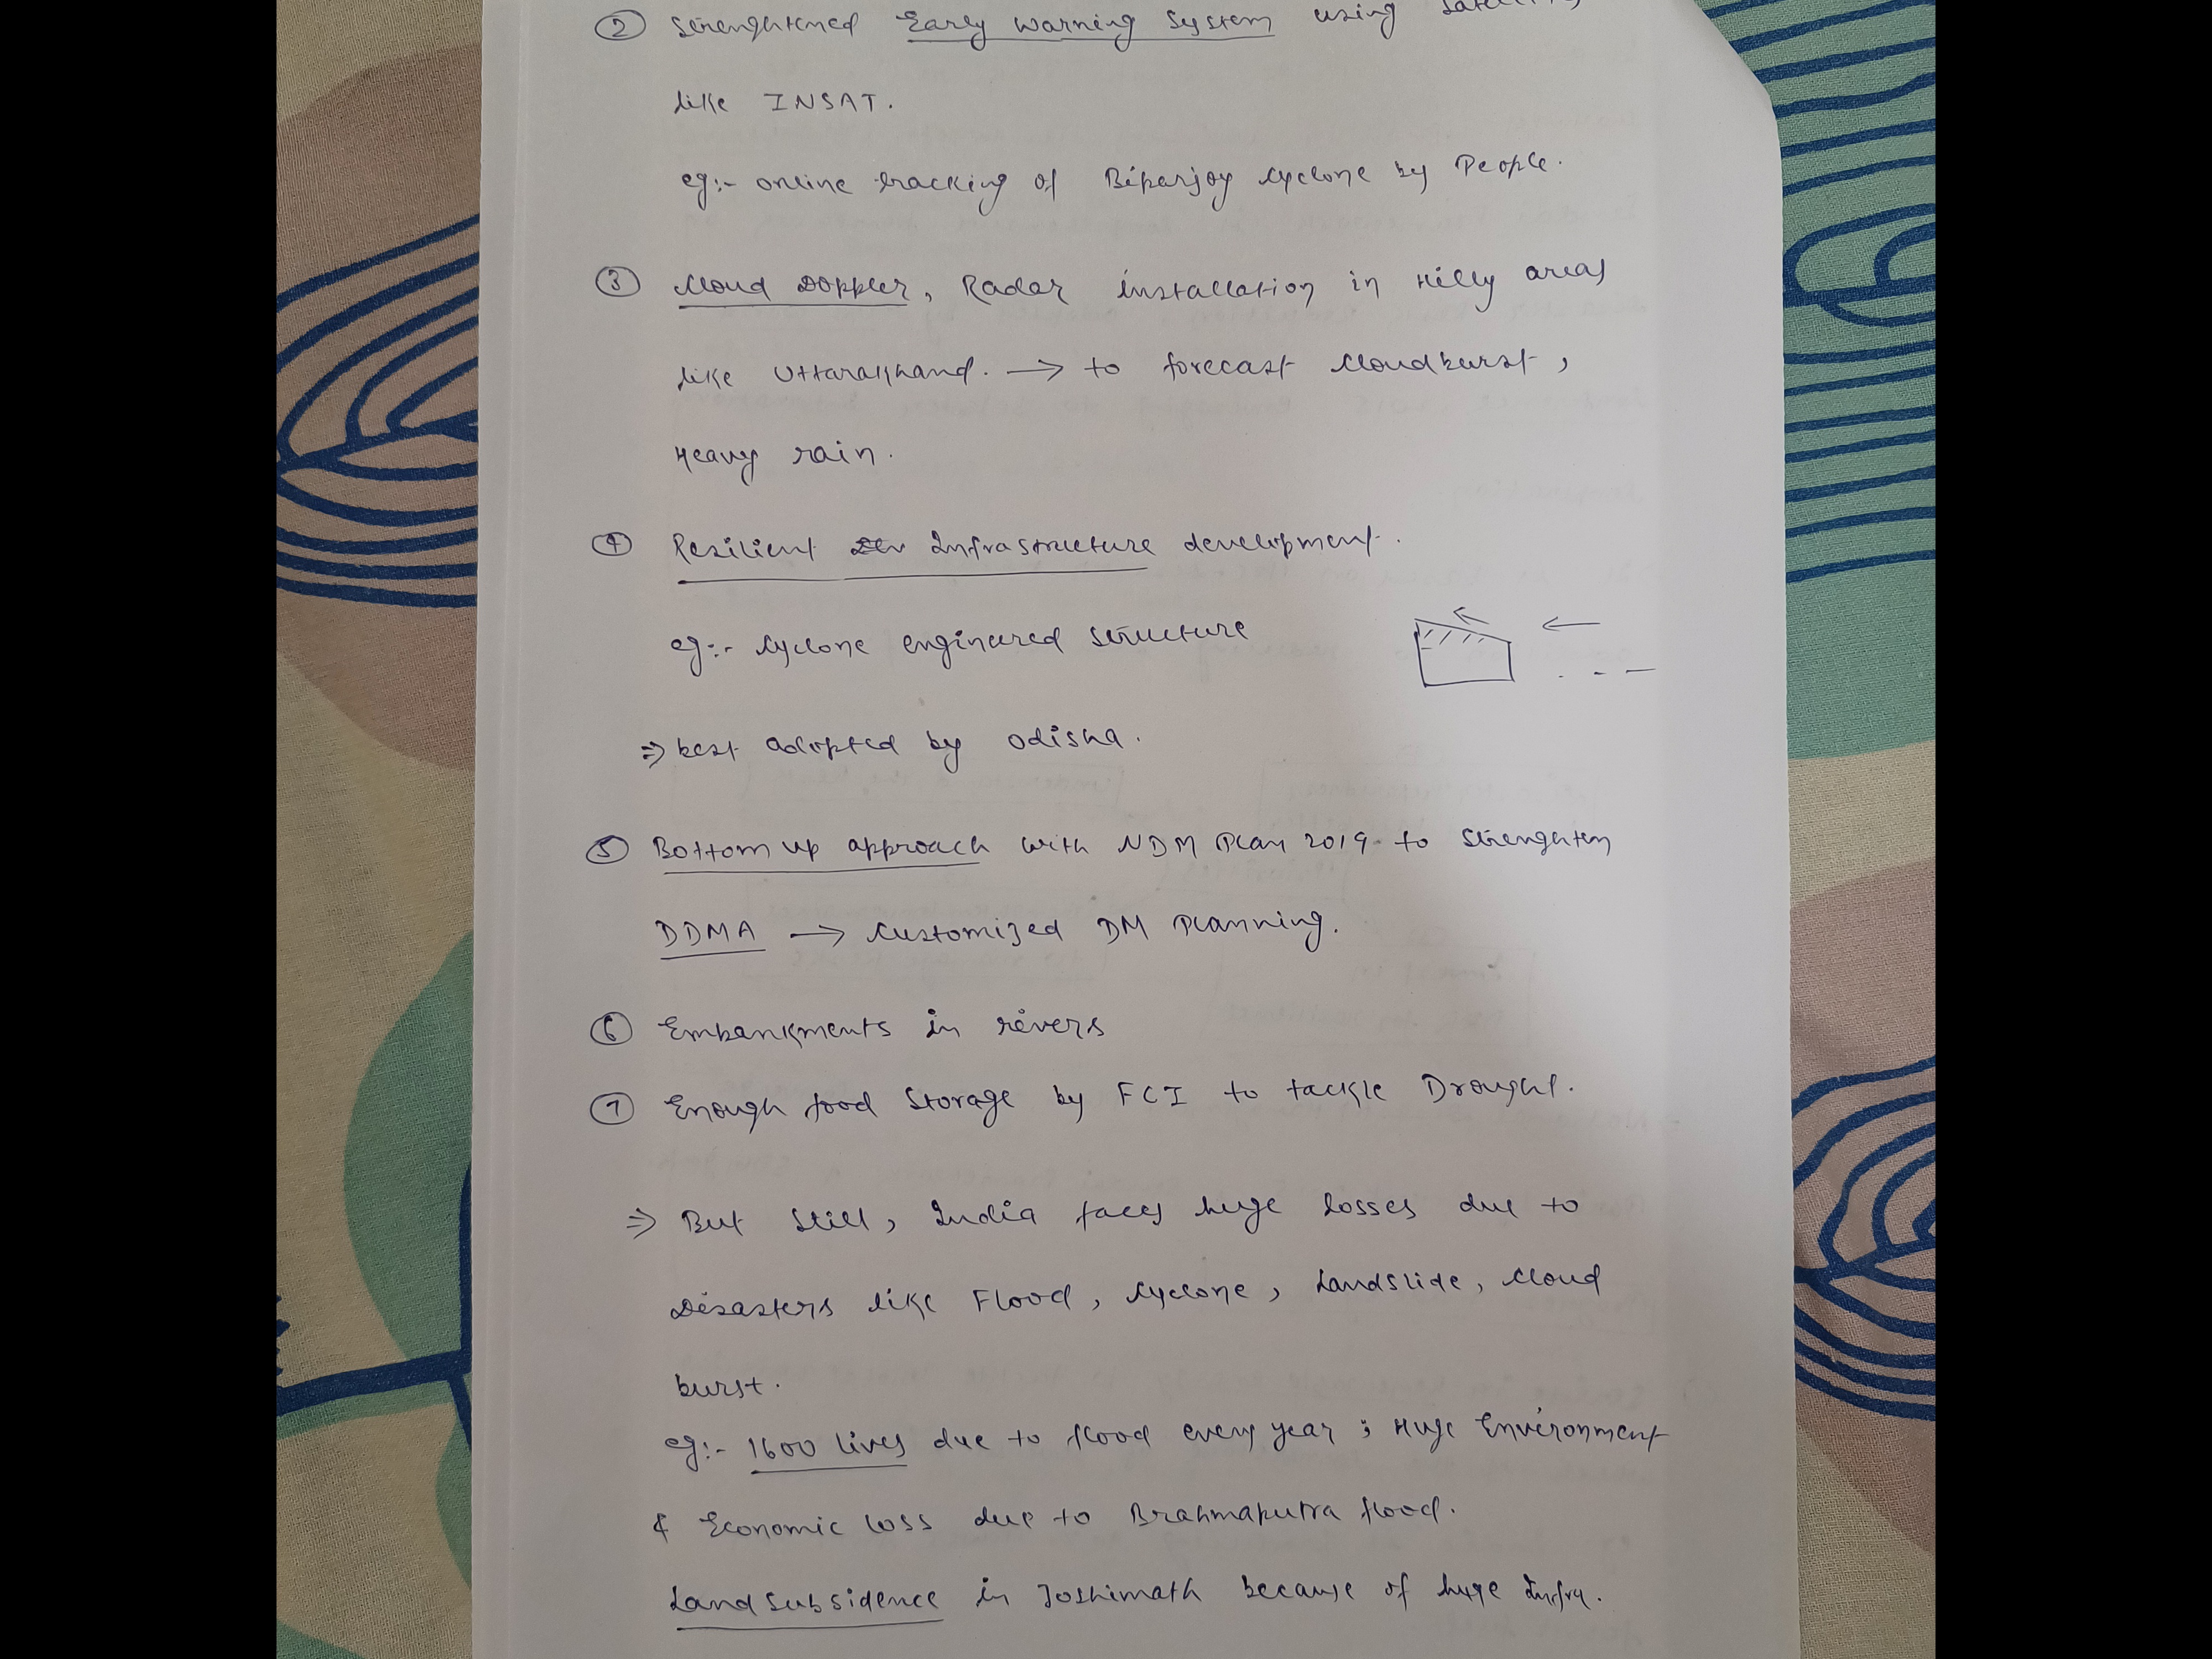 ② Strenghtened Early Warning System using
like INSAT.
eg:- online tracking of Biparjoy cyclone by People.
③ Cloud Doppler, Radar installation in Hilly areas
like Uttarakhand. → to forecast cloudburst,
Heavy rain.
④ Resilient Infrastructure development.
eg:- Cyclone enginered structure
⇒ best adopted by Odisha.
⑤ Bottom up approach with NDM Plan 2019 to Strenghten
DDMA → Customized DM Planning.
⑥ Embankments in rivers
⑦ Enough food Storage by FCI to tackle Drought.
⇒ But still, India faces huge losses due to
Disasters like Flood, Cyclone, Landslide, Cloud
burst.
eg:- 1600 lives due to flood every year ; Huge Environment
& Economic loss due to Brahmaputra flood.
Land subsidence in Joshimath because of huge Infra.